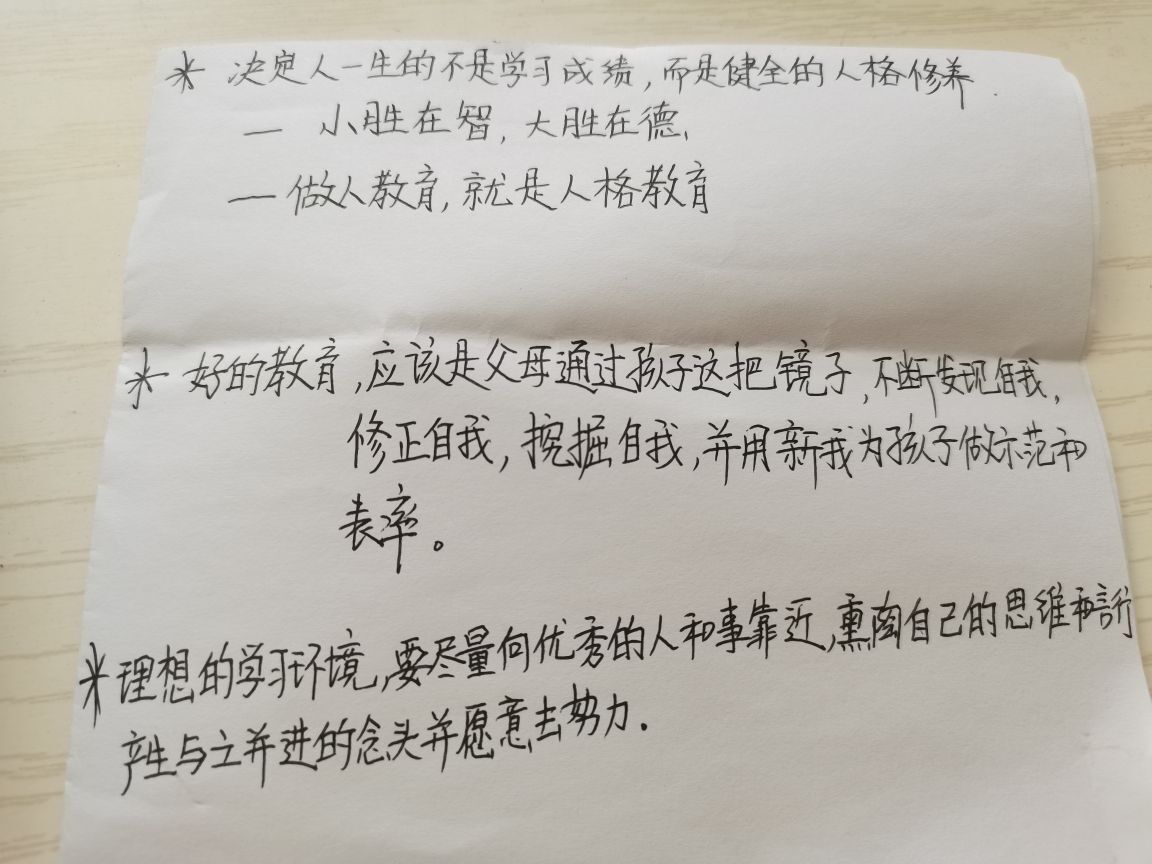 * 决定人一生的不是学习成绩,而是健全的人格修养.
— 小胜在智,大胜在德、
— 做人教育,就是人格教育
* 好的教育,应该是父母通过孩子这把镜子,不断发现自我,
修正自我,挖掘自我,并用新我为孩子做示范和
表率。
* 理想的学习环境,要尽量向优秀的人和事靠近,熏陶自己的思维和言行
产生与之并进的念头并愿意去努力.